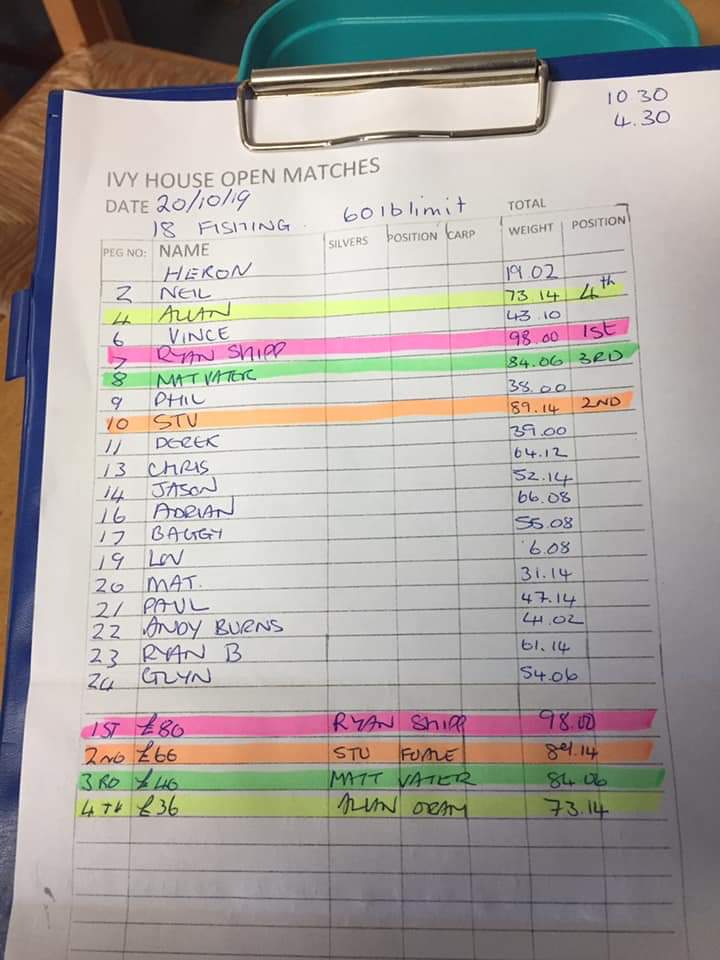 10 30
4.30
IVY HOUSE OPEN MATCHES
DATE 20/10/19
18 FISITING. 60lb limit
PEG NO: NAME SILVERS POSITION CARP TOTAL WEIGHT POSITION
HERON 19.02
2 NEIL
4 ALLAN 73.14 4th
6 VINCE 43.10
7 RYAN SHIPP 98.00 1ST
8 MAT VATER 84.06 3RD
9 PHIL 38.00
10 STU 89.14 2ND
11 DEREK 39.00
13 CHRIS 64.12
14 JASON 52.14
16 ADRIAN 66.08
17 BAGGY 55.08
19 6.08
20 MAT. 31.14
21 PAUL 47.14
22 ANDY BURNS 41.02
23 RYAN B 61.14
24 GLYN 54.06
1ST £80 RYAN SHIPP 98.00
2ND £66 STU 89.14
3RD £46 MATT VATER 84.06
4TH £36 ALLAN ORAM 73.14